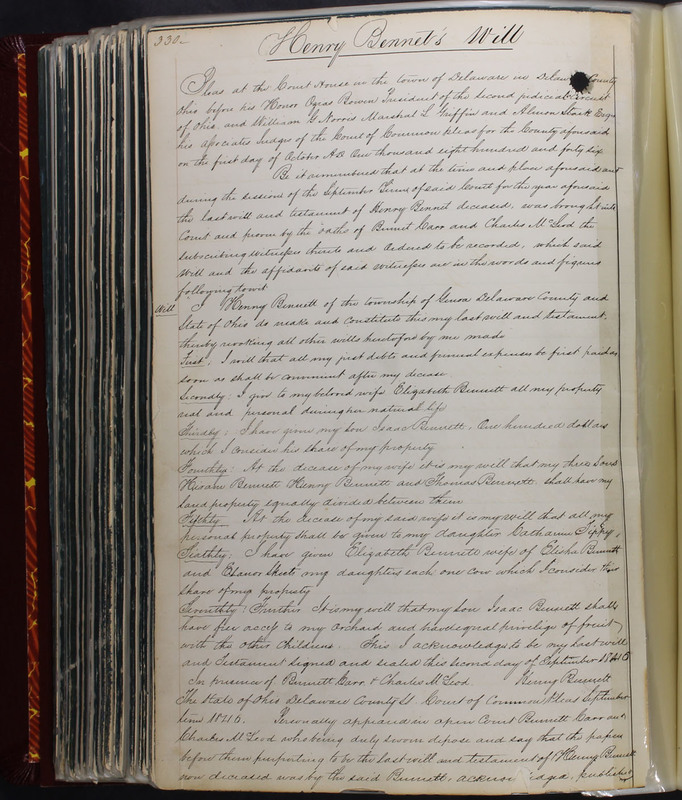 330
Henry Bennet's Will
Pleas at the Court House in the town of Delaware in Delaw County
Ohio before his Honor Ozias Bowen President of the Second judicial Circuit
of Ohio and William G Norris Marshal L Griffin and Almon Stark Esqrs
his associates Judges of the Court of Common pleas for the County aforesaid
on the first day of October AD One thousand eight hundred and forty six
Be it remembered that at the time and place aforesaid and
during the session of the September Term of said Court for the year aforesaid
the last will and testament of Henry Bennet deceased, was brought into
Court and proven by the oaths of Bennet Carr and Charles McLeod the
subscribing witnesses thereto and Ordered to be recorded, which said
Will and the affidavits of said witnesses are in the words and figures
following towit
Will I Henry Bennett of the township of Genoa Delaware County and
State of Ohio do make and constitute this my last will and testament,
thereby revoking all other wills heretofore by me made
First, I will that all my just debts and funeral expenses be first paid as
soon as shall be convenient after my decease
Secondly: I give to my beloved wife Elizabeth Bennett all my property
real and personal during her natural life
Thirdly: I have given my son Isaac Bennett, One hundred dollars
which I consider his share of my property
Fourthly: At the decease of my wife it is my will that my three Sons
Hiram Bennett Henry Bennett and Thomas Bennett shall have my
land property equally divided between them
Fifthly At the decease of my said wife it is my will that all my
personal property shall be given to my daughter Catharine Tippy,
Sixthly: I have given Elizabeth Bennett wife of Elisha Bennett
and Elanor Skeels my daughters each one cow which I consider their
share of my property
Seventhly: Further It is my will that my son Isaac Bennett shall
have free access to my Orchard and have equal privilege of fruit
with the other Childrens. This I acknowledge to be my last will
and Testament signed and sealed this second day of September 1845
In presence of Bennett Carr & Charles McLeod. Henry Bennett
The State of Ohio Delaware County SS. Court of Common Pleas September
term 1846. Personally appeared in open Court Bennett Carr and
Charles McLeod who being duly sworn depose and say that the paper
before them purporting to be the last will and testament of Henry Bennett
now deceased was by the said Bennett, acknowledged, published